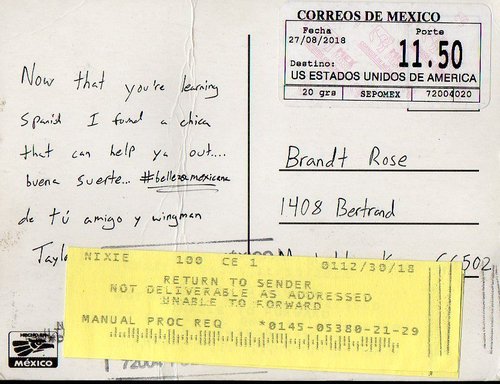 Now that you're learning
Spanish I found a chica
that can help ya out....
buena suerte... #bellezamexicana
de tú amigo y wingman
CORREOS DE MEXICO
Fecha
27/08/2018
Porte
11.50
Destino:
US ESTADOS UNIDOS DE AMERICA
20 grs
SEPOMEX
72004020
Brandt Rose
1408 Bertrand
66502
NIXIE 100 CE 1 0112/30/18
RETURN TO SENDER
NOT DELIVERABLE AS ADDRESSED
UNABLE TO FORWARD
MANUAL PROC REQ *0145-05380-21-29
HECHO EN
MÉXICO